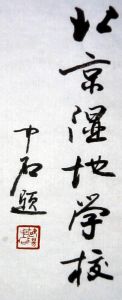 北京湿地学校
中石题